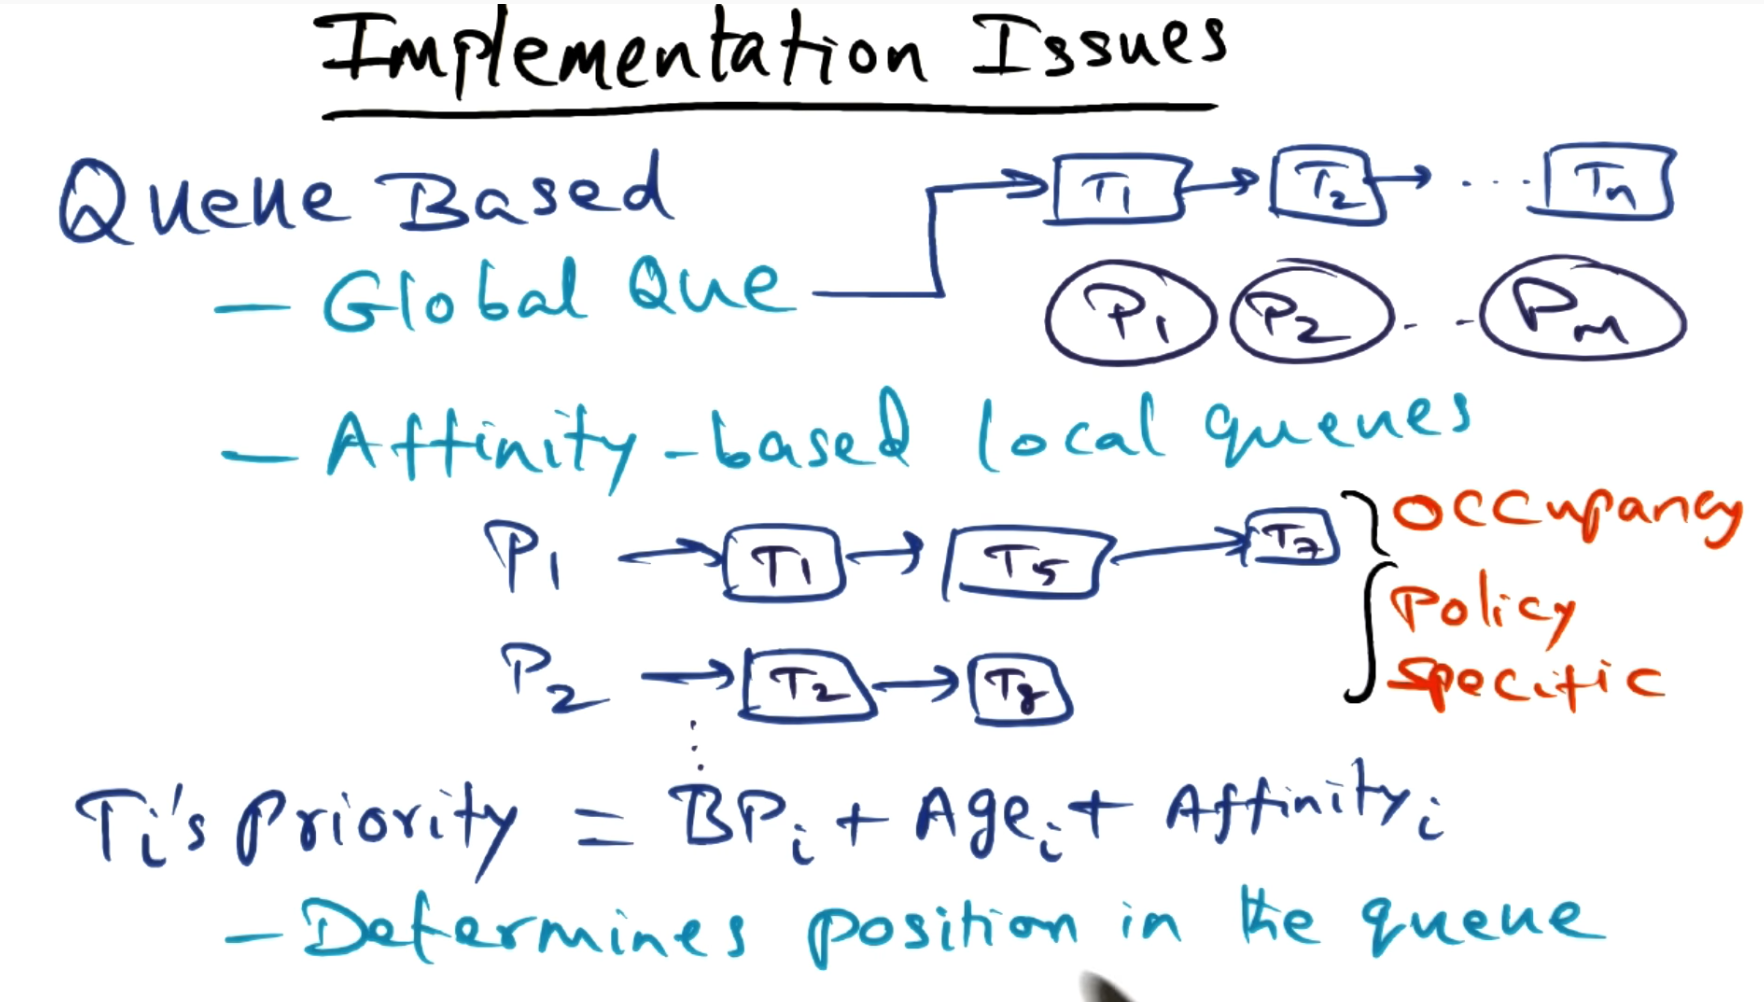 Implementation Issues
Queue Based
T1 T2 .... Tn
- Global Que
P1 P2 ... PM
- Affinity-based local queues
P1 T1 T5 T7
occupancy
Policy
P2 T2 T8
specific
Ti's Priority = BPi + Agei + Affinityi
- Determines position in the queue